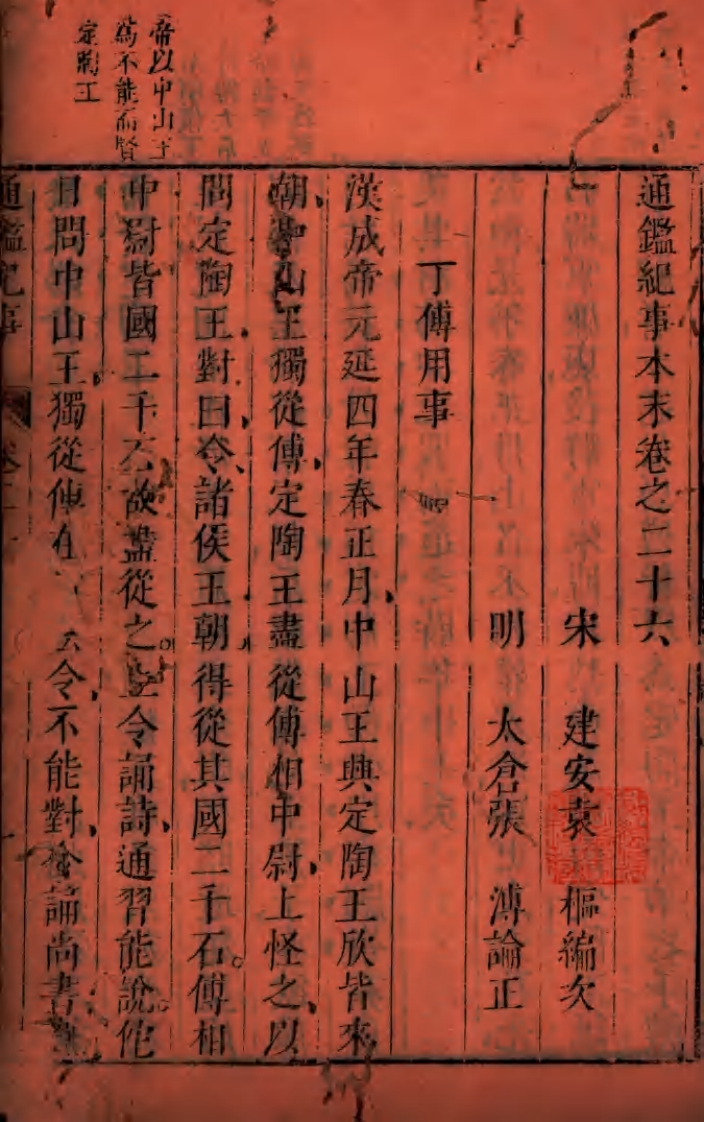 帝以中山王
為不能而賢
定陶王
通鑑紀事本末卷之二十六
宋 建安袁 樞編次
明 太倉張 溥論正
丁傅用事
漢成帝元延四年春正月中山王興定陶王欣皆來
朝中山王獨從傅定陶王盡從傅相中尉上怪之以
問定陶王對曰令諸侯王朝得從其國二千石傅相
中尉皆國二千石故盡從之上令誦詩通習能說佗
日問中山王獨從傅在 令不能對令誦尚書
通鑑紀事